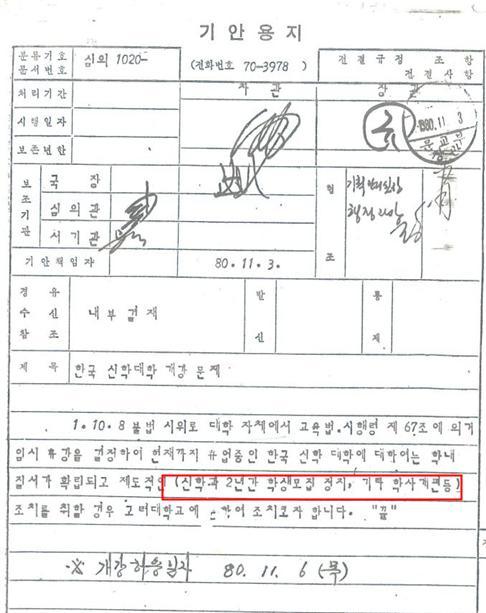 기안용지
분류기호 문서번호 심의 1020- (전화번호 70-3978) 전결규정 조 항 전결사항
처리기간 차관 장관
시행일자
보존년한
1980.11. 3
보조기관 국장 협조
심의관
서기관
기안책임자 80.11.3.
경유 수신 참조 내부결재 발신 통제
제목 한국 신학대학 개강 문제
1.10.8 불법 시위로 대학 자체에서 교육법.시행령 제 67조에 의거
임시 휴강을 결정하여 현재까지 휴업중인 한국 신학 대학에 대하여는 학내
질서가 확립되고 제도적인 (신학과 2년간 학생모집 정지, 기타 학사개편등)
조치를 취할 경우 조치코자 합니다. "끝"
※ 개강허용일자 80. 11. 6 (목)